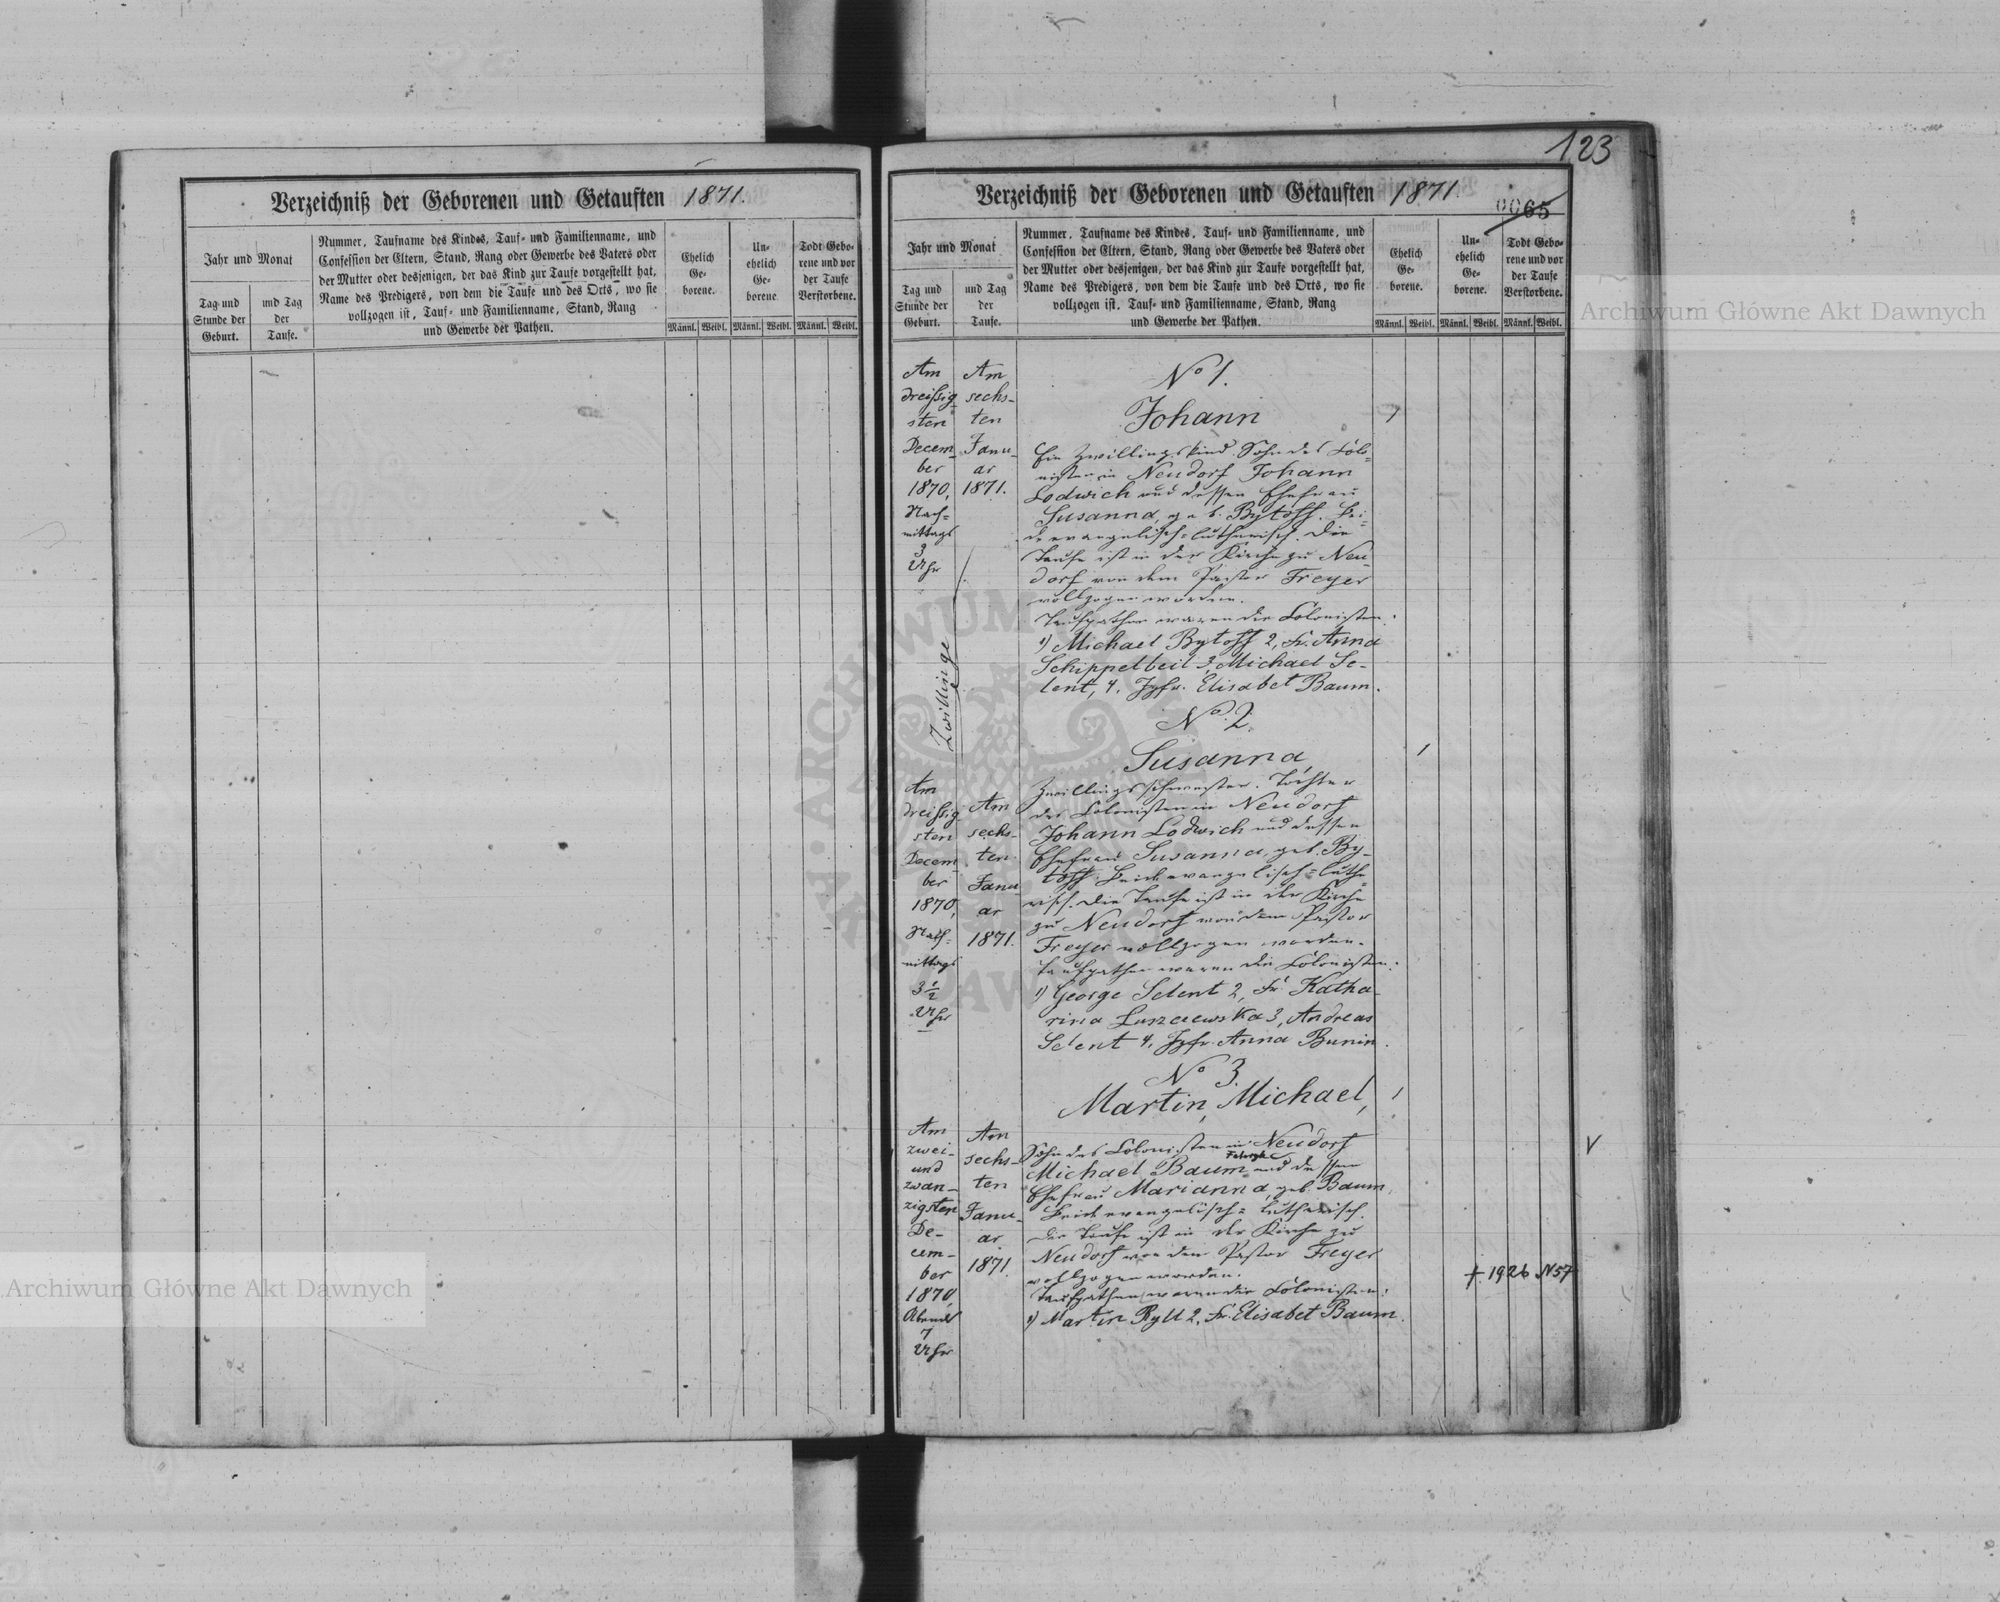 123
Verzeichniß der Geborenen und Getauften 1871.
Jahr und Monat
Tag und Stunde der Geburt.
und Tag der Taufe.
Nummer, Taufname des Kindes, Tauf- und Familienname, und
Confession der Eltern, Stand, Rang oder Gewerbe des Vaters oder
der Mutter oder desjenigen, der das Kind zur Taufe vorgestellt hat,
Name des Predigers, von dem die Taufe und des Orts, wo sie
vollzogen ist, Tauf- und Familienname, Stand, Rang
und Gewerbe der Pathen.
Ehelich Ge- borene.
Un- ehelich Ge- borene
Todt Gebo- rene und vor der Taufe Verstorbene.
Männl. Weibl. Männl. Weibl. Männl. Weibl.
Verzeichniß der Geborenen und Getauften 1871.
0065
Jahr und Monat
Tag und Stunde der Geburt.
und Tag der Taufe.
Nummer, Taufname des Kindes, Tauf- und Familienname, und
Confession der Eltern, Stand, Rang oder Gewerbe des Vaters oder
der Mutter oder desjenigen, der das Kind zur Taufe vorgestellt hat,
Name des Predigers, von dem die Taufe und des Orts, wo sie
vollzogen ist, Tauf- und Familienname, Stand, Rang
und Gewerbe der Pathen.
Ehelich Ge- borene.
Un- ehelich Ge- borene.
Todt Gebo- rene und vor der Taufe Verstorbene.
Männl. Weibl. Männl. Weibl. Männl. Weibl.
Am
dreißig-
sten
Decem-
ber
1870,
Nach-
mittags
3
Uhr
Am
sechs-
ten
Janu-
ar
1871.
No 1.
Johann
1
Ein Zwillingskind. Sohn des Colo-
nisten in Neudorf Johann
Lodwich und dessen Ehefrau
Susanna, geb. Bytoff. Bei-
de evangelisch-lutherisch. Die
Taufe ist in der Kirche zu Neu-
dorf von dem Pastor Freyer
vollzogen worden.
Taufpathen waren die Colonisten:
1) Michael Bytoff 2, Fr. Anna
Schippelbeil 3, Michael Se-
lent, 4. Jgfr. Elisabet Baum.
Zwillinge
No. 2.
Susanna,
1
Am
dreißig-
sten
Decem-
ber
1870,
Nach-
mittags
3 1/2
Uhr
Am
sechs-
ten
Janu
ar
1871.
Zwillingsschwester. Tochter
des Colonisten in Neudorf
Johann Lodwich und dessen
Ehefrau Susanna, geb. By-
toff. Beide evangelisch-luthe-
risch. Die Taufe ist in der Kirche
zu Neudorf von dem Pastor
Freyer vollzogen worden.
Taufpathen waren die Colonisten:
1) George Selent 2, Fr. Katha-
rina 3, Andreas
Selent 4. Jgfr. Anna Bunin.
No 3.
Martin, Michael,
1
Am
zwei-
und
zwan-
zigsten
De-
cem-
ber
1870
Abends
7
Uhr
Am
sechs-
ten
Janu-
ar
1871.
Sohn des Colonisten in Neudorf
Michael Baum und dessen
Ehefrau Marianna, geb. Baum,
Beide evangelisch-lutherisch.
Die Taufe ist in der Kirche zu
Neudorf von dem Pastor Freyer
vollzogen worden.
Taufpathen waren die Colonisten:
1) Martin Ryll 2, Fr. Elisabet Baum.
V
† 1926 N57
Archiwum Główne Akt Dawnych
Archiwum Główne Akt Dawnych